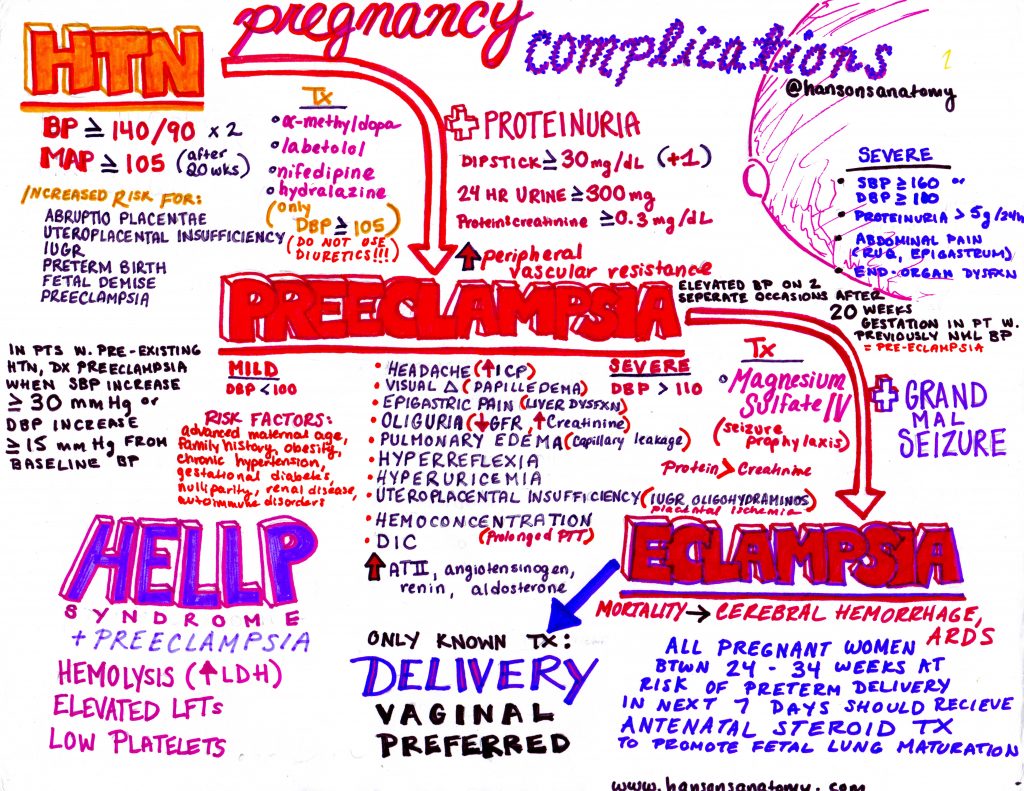 pregnancy
complications
1
@hansonsanatomy
HTN
BP ≥ 140/90 x 2
MAP ≥ 105 (after
20 wks)
INCREASED RISK FOR:
ABRUPTIO PLACENTAE
UTEROPLACENTAL INSUFFICIENCY
IUGR
PRETERM BIRTH
FETAL DEMISE
PREECLAMPSIA
Tx
• α-methyldopa
• labetolol
• nifedipine
• hydralazine
(only
DBP ≥ 105)
(DO NOT USE
DIURETICS!!!)
+ PROTEINURIA
DIPSTICK ≥ 30 mg/dL (+1)
24 HR URINE ≥ 300 mg
Protein:creatinine ≥ 0.3 mg/dL
↑ peripheral
vascular resistance
SEVERE
• SBP ≥ 160 or
DBP ≥ 110
• PROTEINURIA > 5g/24h
• ABDOMINAL PAIN
(RUQ, EPIGASTRUM)
• END-ORGAN DYSFXN
PREECLAMPSIA
ELEVATED BP ON 2
SEPERATE OCCASIONS AFTER
20 WEEKS
GESTATION IN PT W.
PREVIOUSLY NML BP
= PRE-ECLAMPSIA
IN PTS W. PRE-EXISTING
HTN, DX PREECLAMPSIA
WHEN SBP INCREASE
≥ 30 mmHg or
DBP INCREASE
≥ 15 mmHg FROM
BASELINE BP
MILD
DBP < 100
RISK FACTORS:
advanced maternal age,
family history, obesity,
chronic hypertension,
gestational diabetes,
nulliparity, renal disease,
autoimmune disorders
• HEADACHE (↑ICP)
• VISUAL Δ (PAPILLEDEMA)
• EPIGASTRIC PAIN (LIVER DYSFXN)
• OLIGURIA (↓GFR, ↑Creatinine)
• PULMONARY EDEMA (capillary leakage)
• HYPERREFLEXIA
• HYPERURICEMIA
• UTEROPLACENTAL INSUFFICIENCY (IUGR, OLIGOHYDRAMINOS
placental ischemia)
• HEMOCONCENTRATION
• DIC (Prolonged PTT)
↑ ATII, angiotensinogen,
renin, aldosterone
SEVERE
DBP > 110
Tx
• Magnesium
Sulfate IV
(seizure
prophylaxis)
Protein > Creatnine
+ GRAND
MAL
SEIZURE
HELLP
SYNDROME
+ PREECLAMPSIA
HEMOLYSIS (↑LDH)
ELEVATED LFTs
LOW PLATELETS
ECLAMPSIA
MORTALITY → CEREBRAL HEMORRHAGE,
ARDS
ONLY KNOWN TX:
DELIVERY
VAGINAL
PREFERRED
ALL PREGNANT WOMEN
BTWN 24 - 34 WEEKS AT
RISK OF PRETERM DELIVERY
IN NEXT 7 DAYS SHOULD RECIEVE
ANTENATAL STEROID TX
TO PROMOTE FETAL LUNG MATURATION
www.hansonsanatomy.com